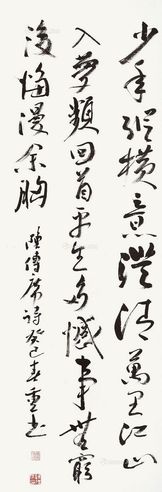 少年縱橫意澄清萬里江山
入夢頻回首平生多懺事無窮
後悔漫余胸
陳傳席詩癸巳春重書